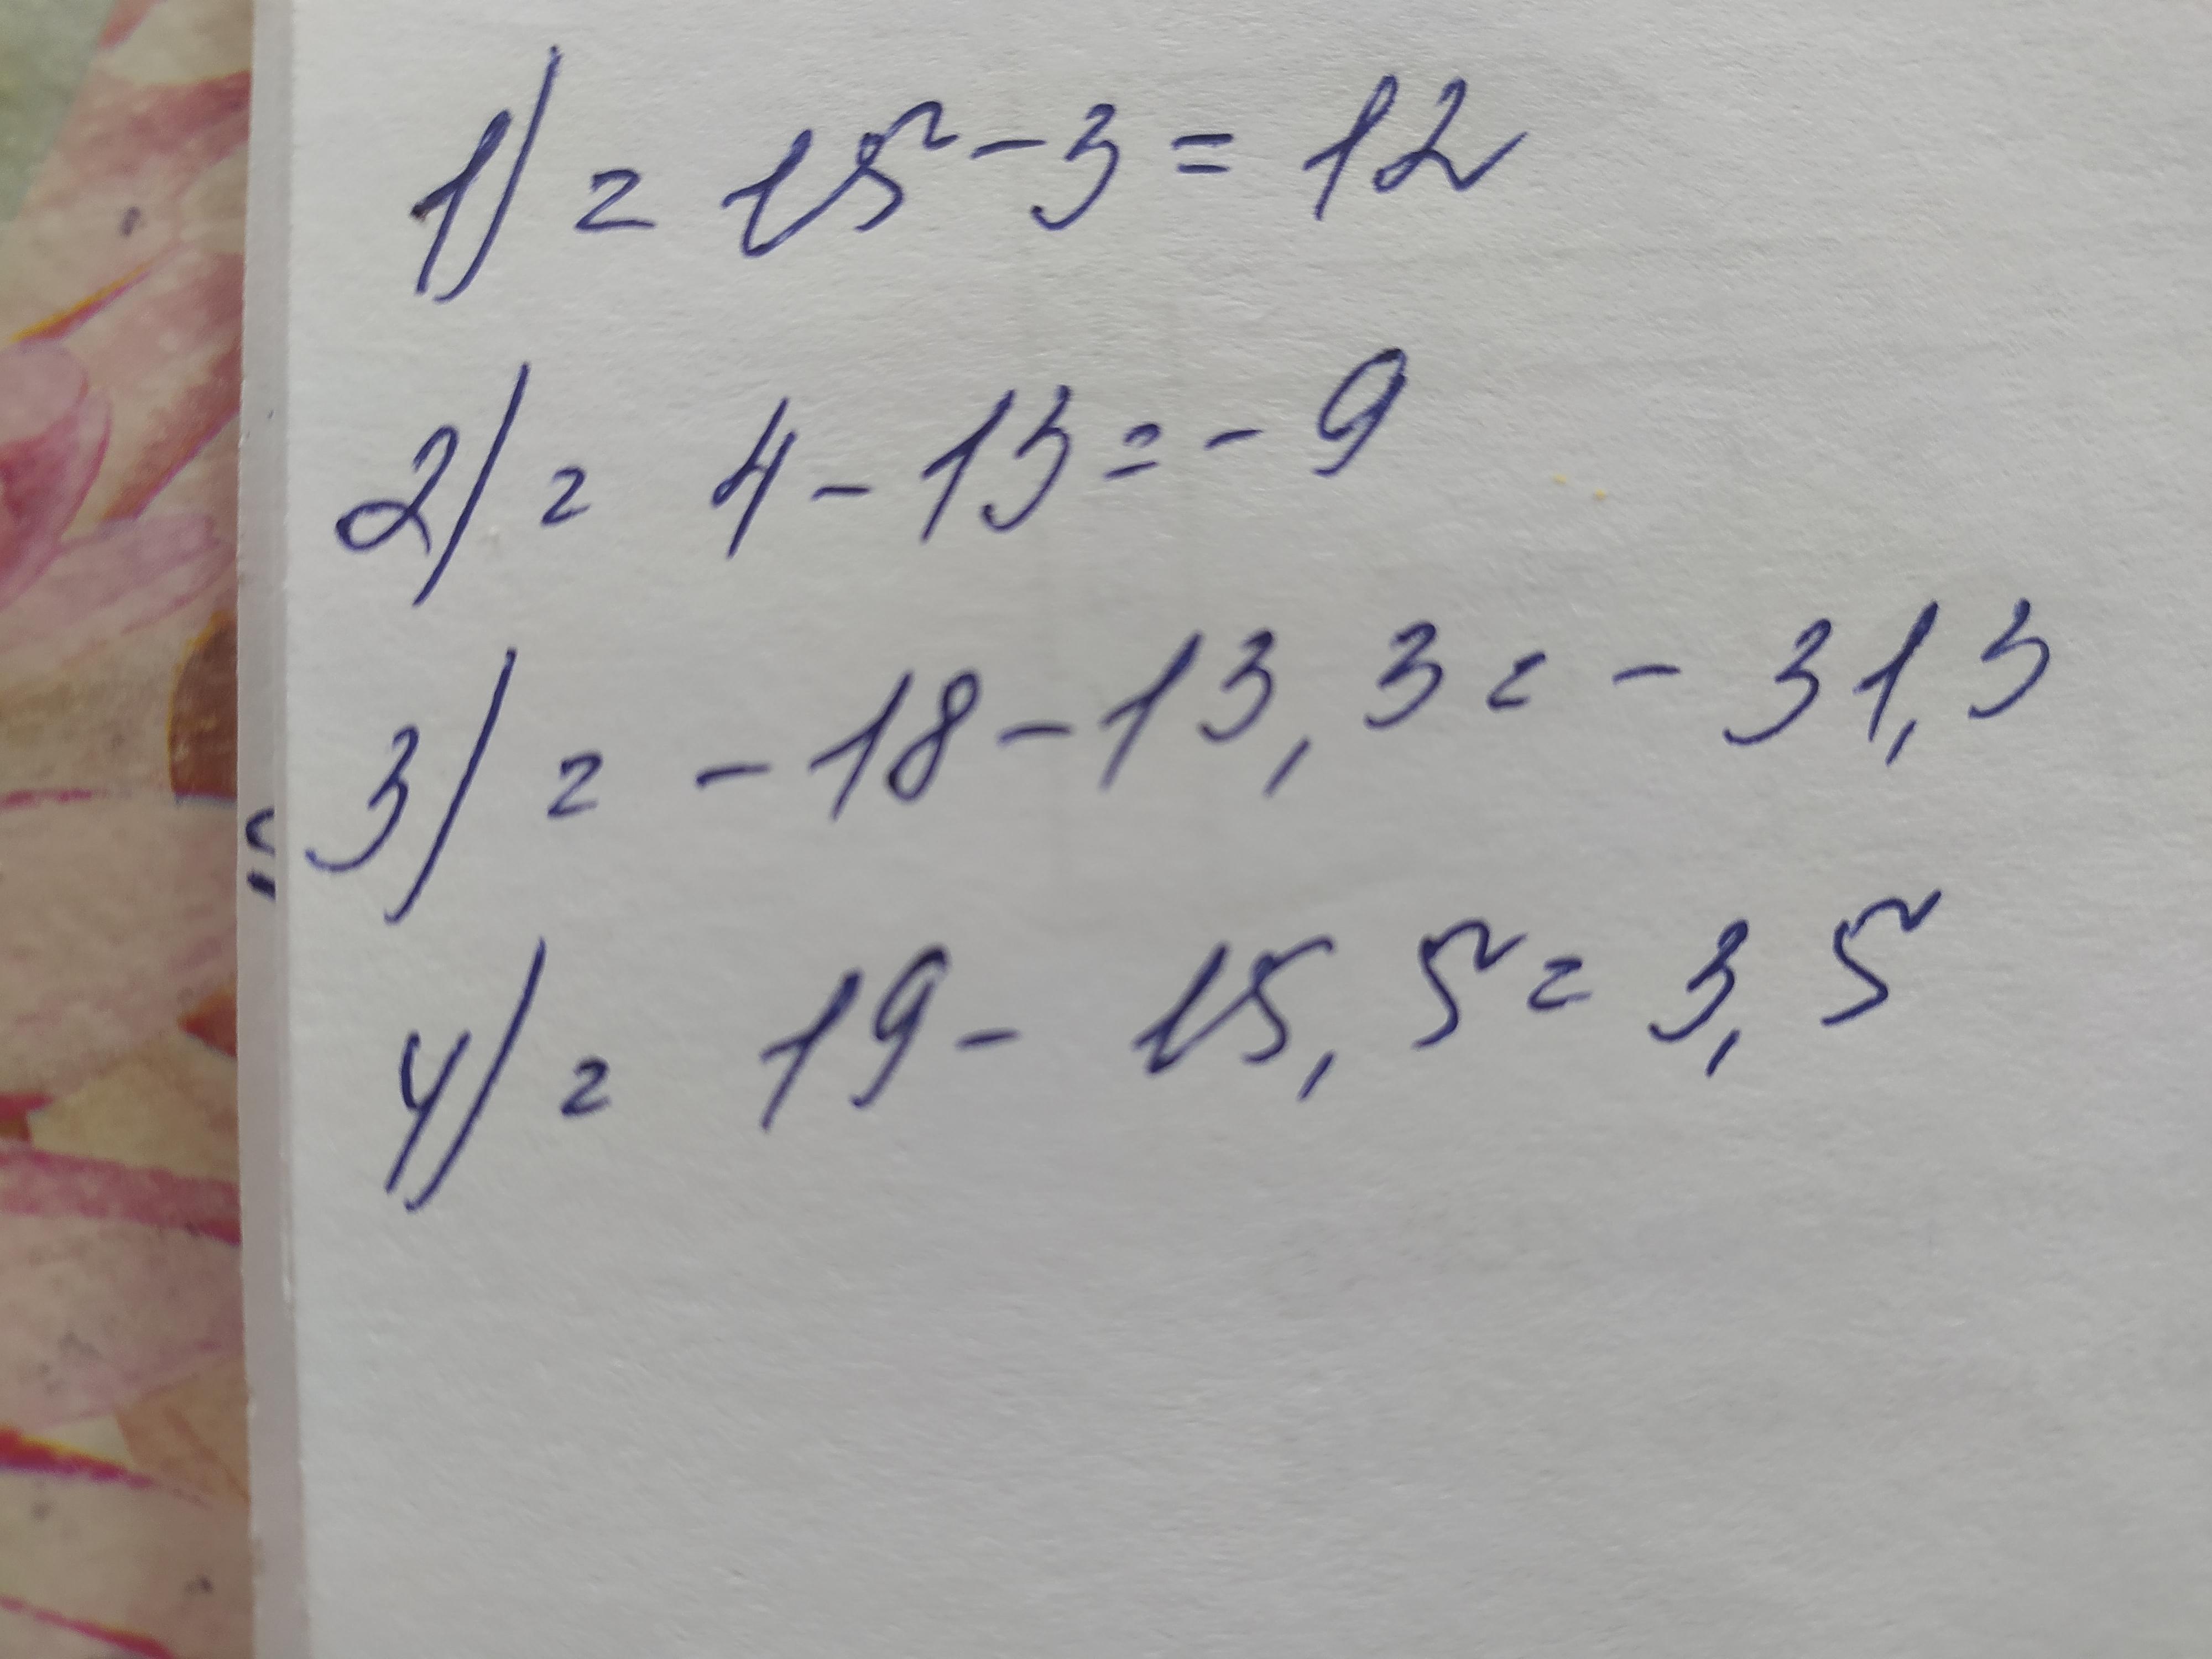 1) = 15 - 3 = 12
2) = 4 - 13 = - 9
3) = - 18 - 13,3 = - 31,3
4) = 19 - 15,5 = 3,5